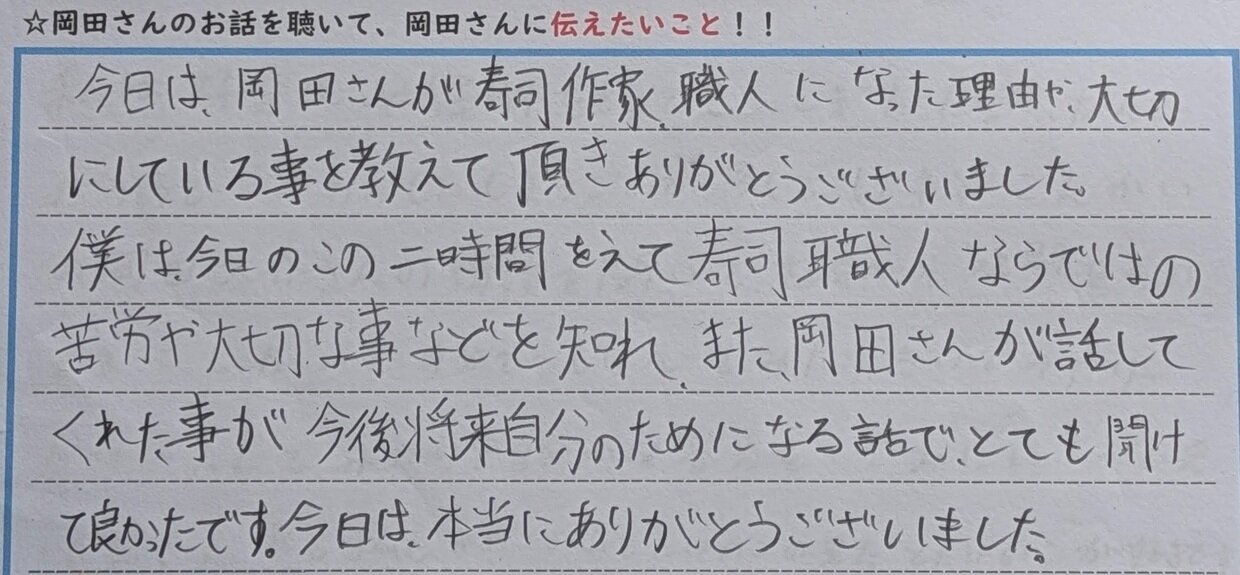 ☆岡田さんのお話を聴いて、岡田さんに伝えたいこと！！
今日は、岡田さんが寿司作家、職人になった理由や、大切
にしている事を教えて頂きありがとうございました。
僕は、今日のこの二時間をえて寿司職人ならではの
苦労や大切な事などを知れ、また、岡田さんが話して
くれた事が今後将来自分のためになる話で、とても聞け
て良かったです。今日は、本当にありがとうございました。